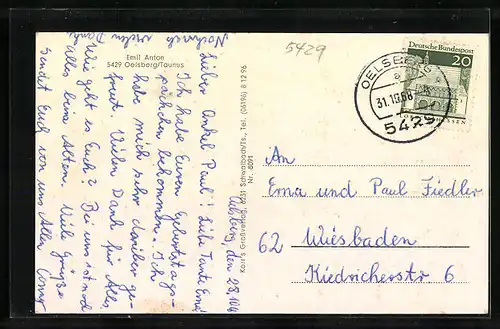 Emil Anton
5429 Oelsberg/Taunus
Oelsberg, den 28.10.
Lieber Onkel Paul! Liebe Tante Erna!
Ich habe Euren Geburtstags-
päckchen bekommen. Ich
habe mich sehr darüber ge-
freut. Vielen Dank für Alles.
Wie geht es Euch? Bei uns ist noch
alles beim Alten. Viele Grüße
sendet Euch von uns Allen
Nochmals vielen Dank
Großverlag, 6231 Schwalbach/Ts., Tel. (06196) 8 12 96
Nr. 8091
5429
OELSBERG
a
31.10.68
5429
Deutsche Bundespost
20
An
Erna und Paul Fiedler
62 Wiesbaden
Kiedricherstr 6